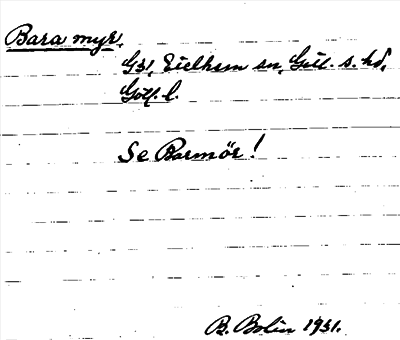 Bara myr.
Gs., Etelhem sn, Gotl. s. hd,
Gotl. l.
Se Barmör!
B. Bolin 1931.